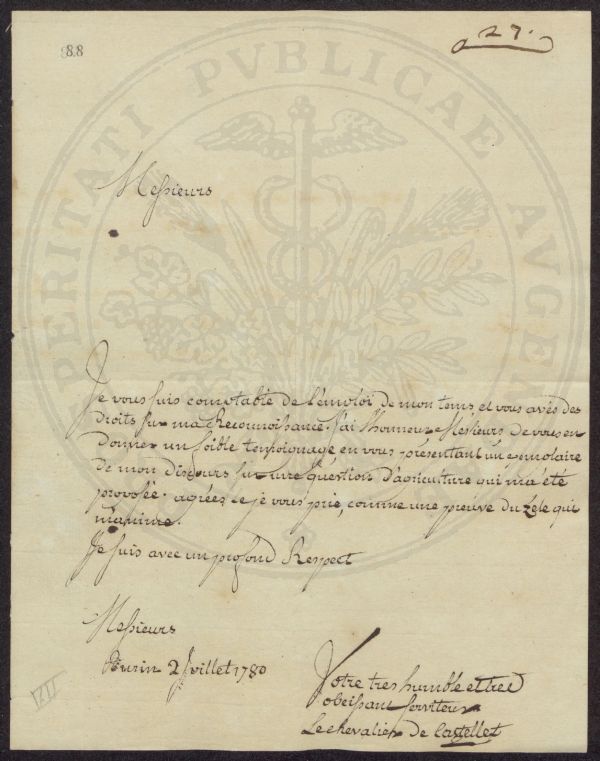 88
27.
PROSPERITATI PVBLICAE AVGENDAE
Messieurs
Je vous suis comptable de l'émploi de mon tems, et vous avés des
droits sur ma Reconnoissance. J'ai l'honneur Messieurs de vous en
donner un foible temoignage en vous présentant un éxemplaire
de mon discours sur une question d'agriculture qui m'a été
proposée. agrées le je vous prie, comme une preuve du Zele qui
m'anime.
Je suis avec un profond Respect
Messieurs
Turin 2 Juillet 1780
Votre tres humble et tres
obeissant serviteur
Le chevalier de Castellet